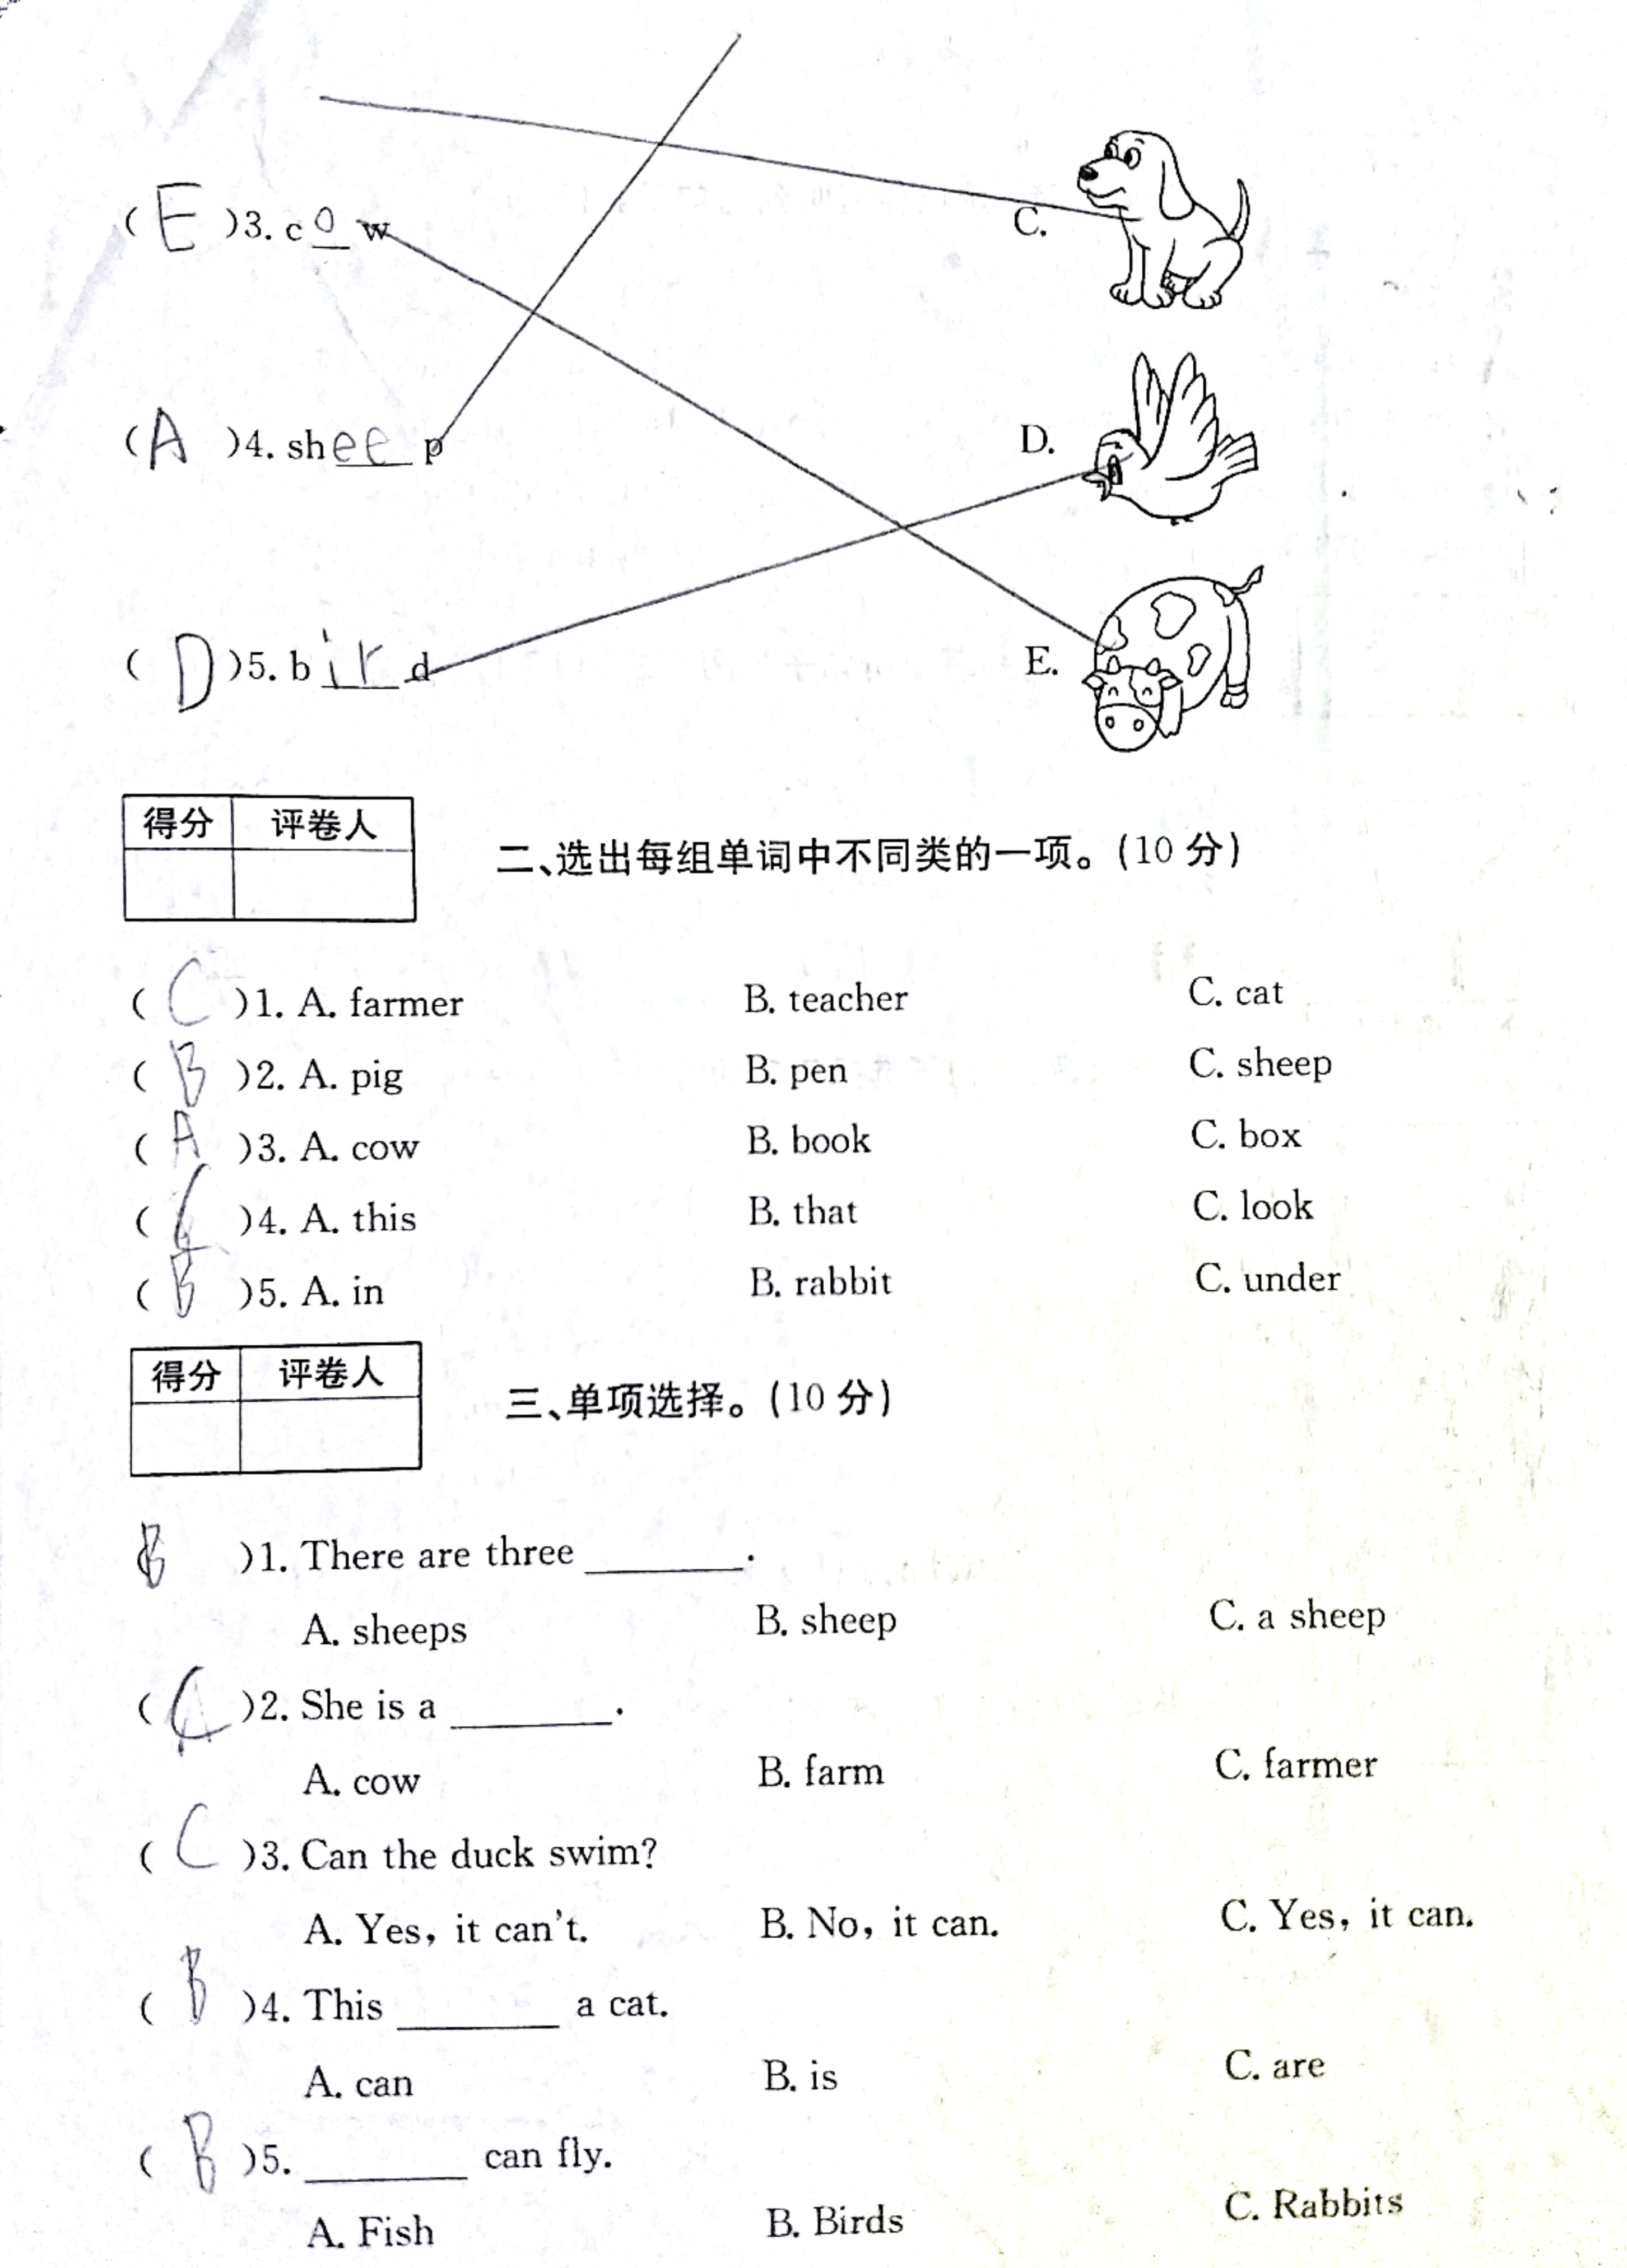 C.
( E )3. c o w
( A )4. shee p
D.
( D )5. b ir d
E.
得分 评卷人
二、选出每组单词中不同类的一项。(10 分)
( C )1. A. farmer B. teacher C. cat
( B )2. A. pig B. pen C. sheep
( A )3. A. cow B. book C. box
( C )4. A. this B. that C. look
( B )5. A. in B. rabbit C. under
得分 评卷人
三、单项选择。(10 分)
( B )1. There are three ________.
A. sheeps B. sheep C. a sheep
( C )2. She is a ________.
A. cow B. farm C. farmer
( C )3. Can the duck swim?
A. Yes, it can't. B. No, it can. C. Yes, it can.
( B )4. This ________ a cat.
A. can B. is C. are
( B )5. ________ can fly.
A. Fish B. Birds C. Rabbits